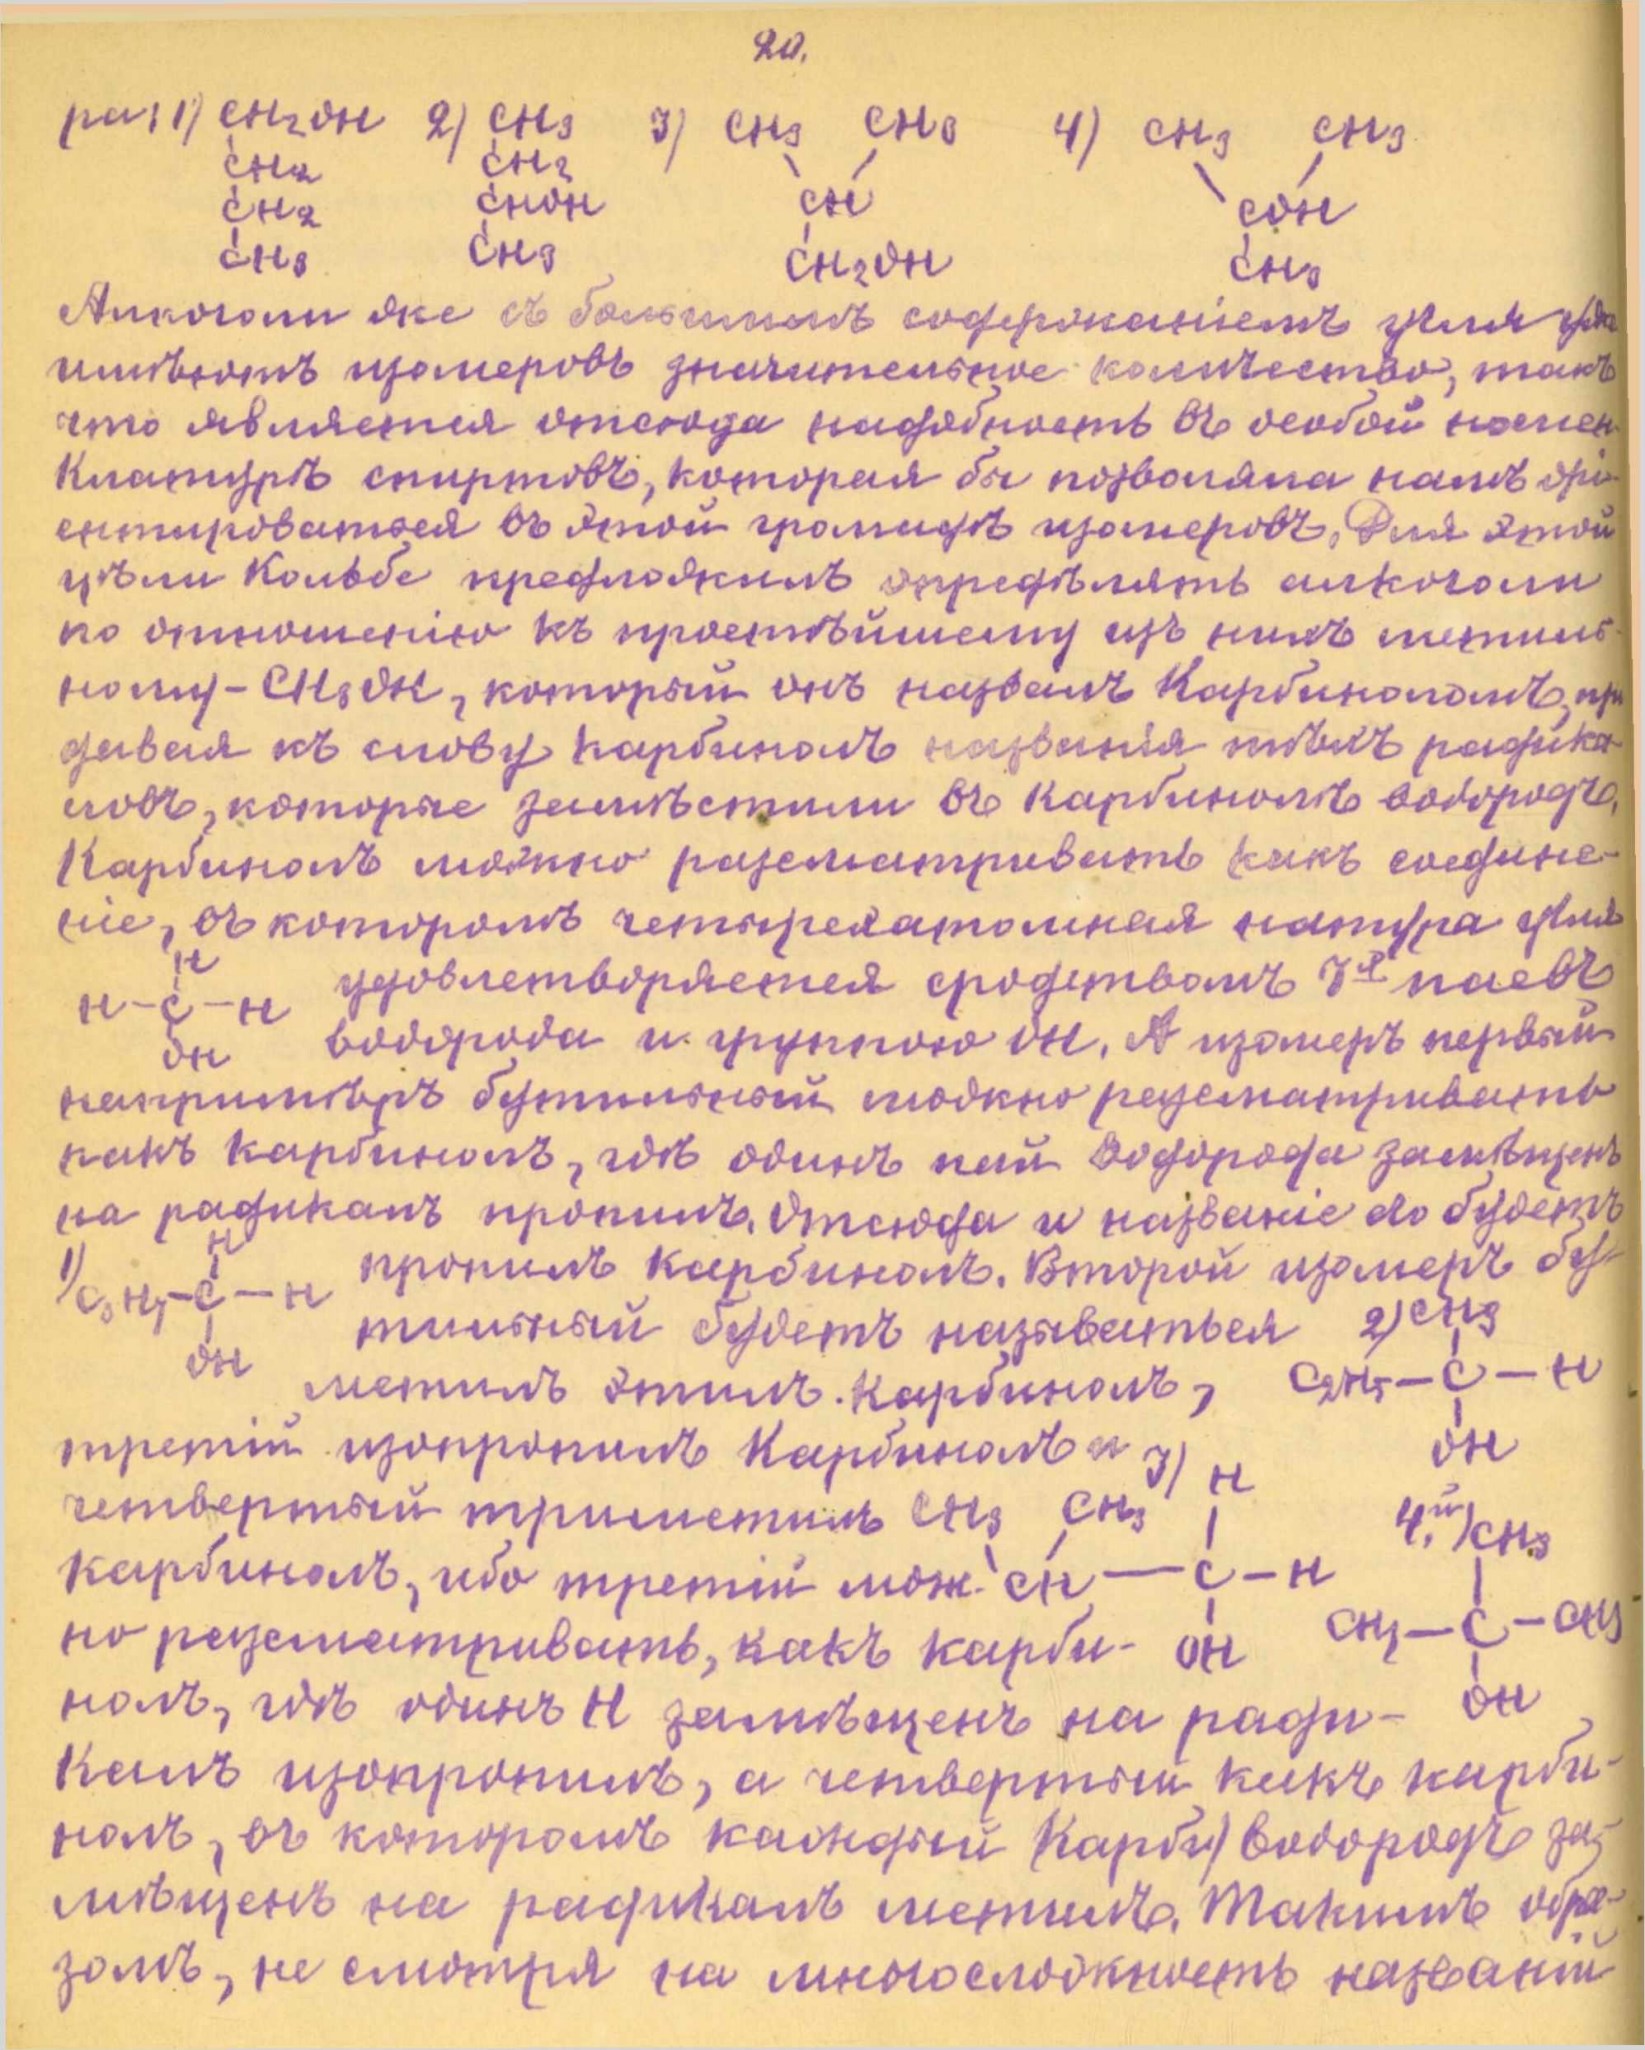 20.
ра: 1) CH2OH 2) CH3 3) CH3 CH3 4) CH3 CH3
CH2 CH2 CH COH
CH2 CHOH CH2OH CH3
CH3 CH3
Алкоголи же съ большимъ содержаніемъ угля
имѣютъ изомеровъ значительное количество, такъ
что является отсюда надобность въ особой номен-
клатурѣ спиртовъ, которая бы позволяла намъ орі-
ентироваться въ этой громадѣ изомеровъ. Для этой
цѣли Кольбе предложилъ опредѣлять алкоголи
по отношенію къ простѣйшему изъ нихъ метиль-
ному - CH3OH, который онъ назвалъ Карбиноломъ, при
давая къ слову карбинолъ названія тѣхъ радика-
ловъ, которые замѣстили въ карбинолѣ водородъ.
Карбинолъ можно разсматривать какъ соедине-
ніе, въ которомъ четырехатомная натура угля
H
H-C-H удовлетворяется сродствомъ 3х паевъ
OH водорода и группою OH. А изомеръ первый
напримѣръ бутильный можно разсматривать
какъ карбинолъ, гдѣ одинъ пай водорода замѣщенъ
на радикалъ пропилъ. Отсюда и названіе его будетъ
1) H
C3H7-C-H пропилъ карбинолъ. Второй изомеръ бу-
OH тильный будетъ называться 2) CH3
метилъ этилъ. карбинолъ, C2H5-C-H
OH
третій изопропилъ Карбинолъ и 3) H
четвертый триметилъ CH3 CH3 4.й) CH3
карбинолъ, ибо третій мож- CH — C-H
но разсматривать, какъ карби- OH CH3-C-CH3
нолъ, гдѣ одинъ H замѣщенъ на ради- OH
калъ изопропилъ, а четвертый какъ карби-
нолъ, въ которомъ каждый (карби) водородъ за-
мѣщенъ на радикалъ метилъ. Такимъ обра-
зомъ, не смотря на многосложность названій